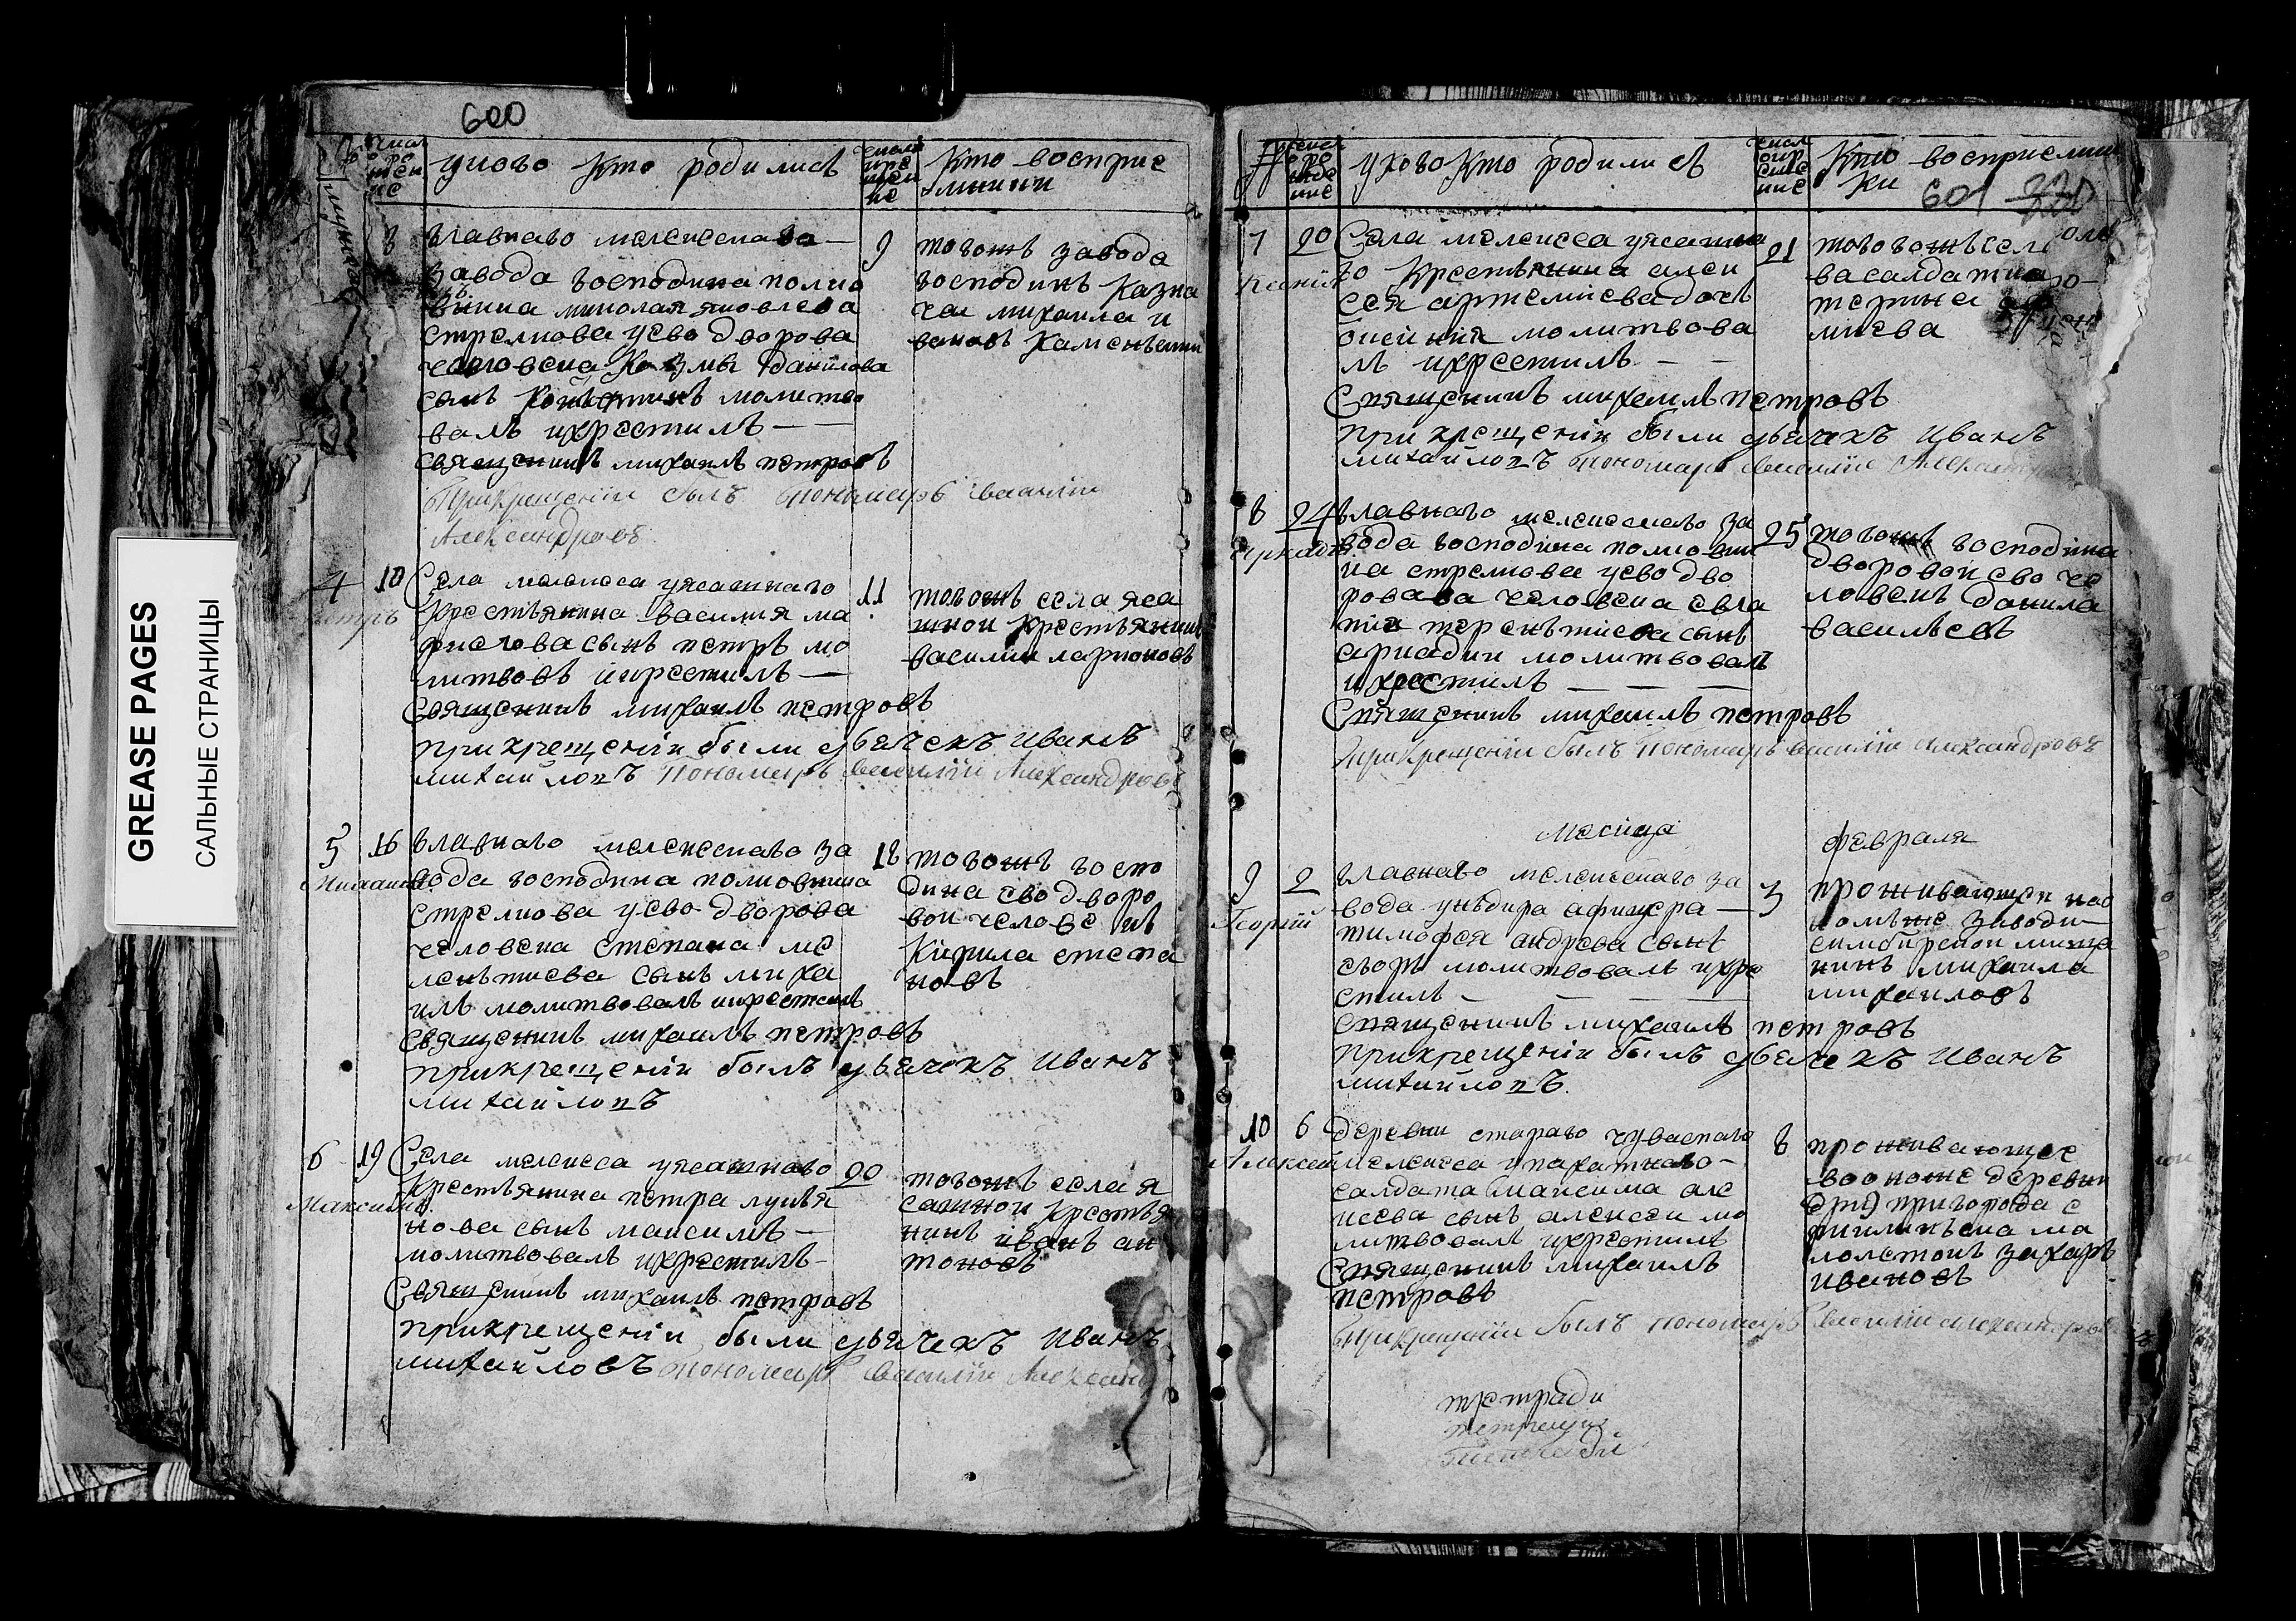 GREASE PAGES
САЛЬНЫЕ СТРАНИЦЫ
600
число рожение
укого кто родились
число крещение
Кто восприемники
8
главнаго мелекескаго
завода господина полко
вника николая яковлева
стрелкова уево дворова
человека Козмы данилова
сынъ молитво
валъ ихрестилъ
священникъ михаилъ петровъ
При крещении былъ пономарь василий
Александровъ
9
тогожъ завода
господинъ казна
чеи михаила и
вановъ
4
Петръ
10
Села мелекеса уясашнаго
крестьянина василия ма
сынъ петръ мо
литвовъ икрестилъ
Священникъ михаилъ петровъ
при крещении были дьячекъ Иванъ
михайловъ Пономарь василии Александровъ
11
тогожъ села яса
шнои крестьянинъ
василии ларионовъ
5
Михаилъ
16
главнаго мелекескаго за
вода господина полковника
стрелкова уево дворова
человека степана ме
лентиева сынъ миха
илъ молитвовалъ икрестилъ
священникъ михаилъ петровъ
при крещении былъ дьячекъ Иванъ
михайловъ
18
тогожъ госпо
дина ево дворо
вои человекъ
Кирила степа
новъ
6
Максимъ
19
Села мелекеса уясашнаго
крестьянина петра лукья
нова сынъ максимъ
молитвовалъ ихрестилъ
Священникъ михаилъ петровъ
при крещении были дьячекъ Иванъ
михайловъ пономарь василии Александ
20
тогожъ села я
сашнои крестья
нинъ иванъ ан
тоновъ
число рождение
укого кто родились
число крещение
Кто восприемники
601
7
Ксения
20
Села мелекеса уясашна
го крестьянина алек
сея артемиева дочь
ксения молитвова
лъ ихрестилъ
Священникъ михаилъ петровъ
при крещении были дьячекъ Иванъ
михайловъ пономарь василие Александ
21
тогожъ села
салдатка
миева
8
Аркадий
24
главнаго мелекескаго за
вода господина полковни
ка стрелкова уево дво
рова человека
терентиева сынъ
аркадии молитвовалъ
ихрестилъ
Священникъ михаилъ петровъ
При крещении былъ пономарь василии Александровъ
25
тогожъ господина
дворовои ево че
ловекъ данила
васильевъ
месяца февраля
9
Георгий
2
главнаго мелекескаго за
вода ундира афицера
тимофея андреева сынъ
егоръ молитвовалъ ихре
стилъ
священникъ михаилъ петровъ
при крещении былъ дьячекъ Иванъ
михайловъ
3
проживающеи на
заводи
симбирскои меща
нинъ михаила
михаиловъ
10
Алексей
6
деревни стараго чуваскаго
мелекеса упахатнаго
салдата максима але
ксеева сынъ алексеи мо
литвовалъ ихрестилъ
Священникъ михаилъ
петровъ
При крещении былъ пономарь василии александровъ
8
проживающее
деревни
пригорода
захаръ
ивановъ
тетради